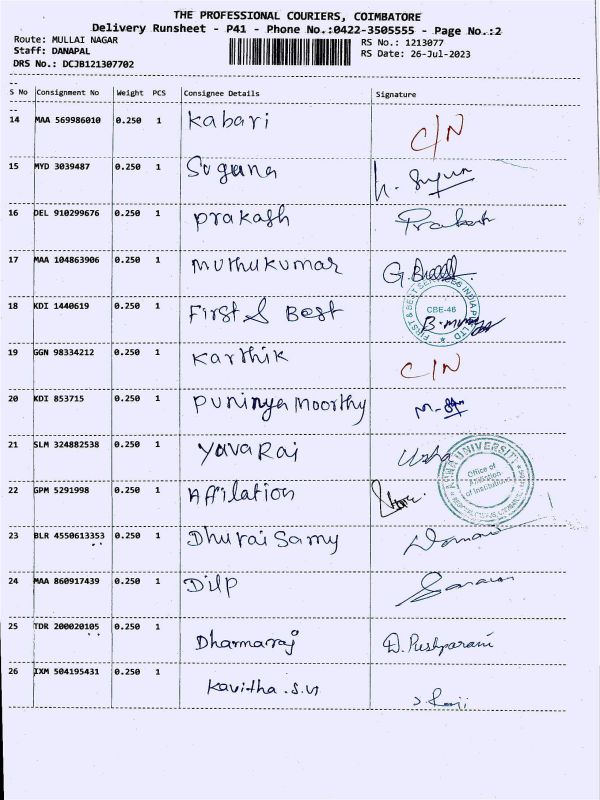 THE PROFESSIONAL COURIERS, COIMBATORE
Delivery Runsheet - P41 - Phone No.:0422-3505555 - Page No.:2
Route: MULLAI NAGAR
Staff: DANAPAL
DRS No.: DCJB121307702
RS No.: 1213077
RS Date: 26-Jul-2023
S No Consignment No Weight PCS Consignee Details Signature
14 MAA 569986010 0.250 1 Kabari C/N
15 MYD 3039487 0.250 1 Sugana
16 DEL 910299676 0.250 1 Prakash Prakash
17 MAA 104863906 0.250 1 Muthukumar
18 KDI 1440619 0.250 1 First & Best
FIRST & BEST SERVICES INDIA PVT LTD
CBE-46
19 GGN 98334212 0.250 1 Karthik C/N
20 KDI 853715 0.250 1 Puninya Moorthy
21 SLM 324882538 0.250 1 YavaRaj Usha
ANNA UNIVERSITY
Office of
of Institutions
22 GPM 5291998 0.250 1 Affilation
23 BLR 4550613353 0.250 1 Dhurai Samy
24 MAA 860917439 0.250 1 Dilp
25 TDR 200020105 0.250 1 Dharmaraj D. Pushparani
26 IXM 504195431 0.250 1 Kavitha .S.N